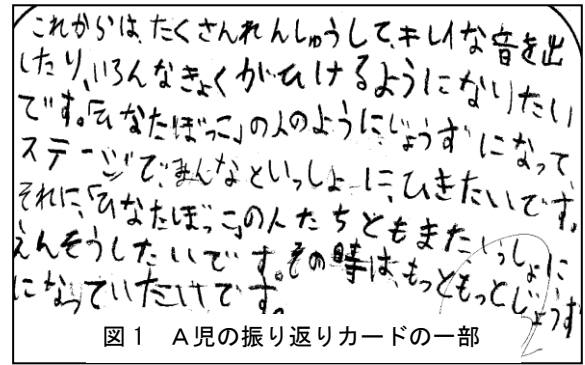 これからは、たくさんれんしゅうして、キレイな音を出
したり、いろんなきょくがひけるようになりたい
です。「ひなたぼっこ」の人のように、じょうずになって、
ステージで、まんなといっしょに、ひきたいです。
それに、「ひなたぼっこ」の人たちともまたいっしょに
えんそうしたいです。その時は、もっともっとじょうず
になっていたいです。
図1　A児の振り返りカードの一部